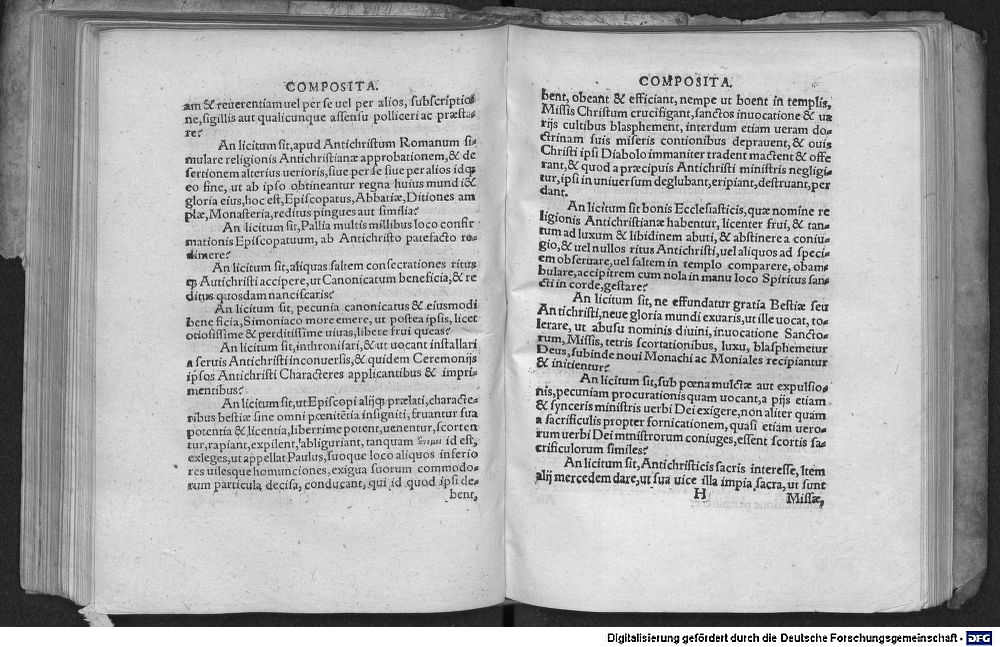 COMPOSITA.
am & reuerentiam uel per se uel per alios, subscriptio⸗
ne, sigillis aut qualicunque assensu polliceri ac præsta⸗
re?
An licitum sit, apud Antichristum Romanum si⸗
mulare religionis Antichristianæ approbationem, & de
sertionem alterius uerioris, siue per se siue per alios idq;
eo fine, ut ab ipso obtineantur regna huius mundi &
gloria eius, hoc est, Episcopatus, Abbatiæ, Ditiones am
plæ, Monasteria, reditus pingues aut similia?
An licitum sit, Pallia multis millibus loco confir
mationis Episcopatuum, ab Antichristo patefacto re⸗
dimere?
An licitum sit, aliquas saltem consecrationes ritus
q; Antichristi accipere, ut Canonicatum beneficia, & re
ditus quosdam nanciscaris?
An licitum sit, pecunia canonicatus & eiusmodi
bene ficia, Simoniaco more emere, ut postea ipsis, licet
otiosissime & perditissime uiuas, libere frui queas?
An licitum sit, inthronisari, & ut uocant installari
a seruis Antichristi inconuersis, & quidem Ceremonijs
ipsos Antichristi Characteres applicantibus & impri⸗
mentibus?
An licitum sit, ut Episcopi alijq; prælati, characte⸗
ribus bestiæ sine omni pœnitētia insigniti, fruantur sua
potentia & licentia, liberrime potent, uenentur, scorten
tur, rapiant, expilent, abliguriant, tanquam ἄνομοι id est,
exleges, ut appellat Paulus, suoque loco aliquos inferio
res uilesque homunciones, exigua suorum commodo⸗
rum particula decisa, conducant, qui id quod ipsi de⸗
bent,
COMPOSITA.
bent, obeant & efficiant, nempe ut boent in templis,
Missis Christum crucifigant, sanctos inuocatione & ua
rijs cultibus blasphement, interdum etiam ueram do⸗
ctrinam suis miseris contionibus deprauent, & ouis
Christi ipsi Diabolo immaniter tradent mactent & offe
rant, & quod a præcipuis Antichristi ministris negligi⸗
tur, ipsi in uniuersum deglubant, eripiant, destruant, per
dant.
An licitum sit bonis Ecclesiasticis, quæ nomine re
ligionis Antichristianæ habentur, licenter frui, & tan⸗
tum ad luxum & libidinem abuti, & abstinere a coniu⸗
gio, & uel nullos ritus Antichristi, uel aliquos ad speci⸗
em obseruare, uel saltem in templo comparere, obam⸗
bulare, accipitrem cum nola in manu loco Spiritus san⸗
cti in corde, gestare?
An licitum sit, ne effundatur gratia Bestiæ seu
Antichristi, neue gloria mundi exuaris, ut ille uocat, to⸗
lerare, ut abusu nominis diuini, inuocatione Sancto⸗
rum, Missis, tetris scortationibus, luxu, blasphemetur
Deus, subinde noui Monachi ac Moniales recipiantur
& initientur?
An licitum sit, sub pœna mulctæ aut expulsio⸗
nis, pecuniam procurationis quam uocant, a pijs etiam
& synceris ministris uerbi Dei exigere, non aliter quam
a sacrificulis propter fornicationem, quasi etiam uero⸗
rum uerbi Dei ministrorum coniuges, essent scortis sa⸗
crificulorum similes?
An licitum sit, Antichristicis sacris interesse, Item
alij mercedem dare, ut sua uice illa impia sacra, ut sunt
H Missæ,
Digitalisierung gefördert durch die Deutsche Forschungsgemeinschaft - DFG